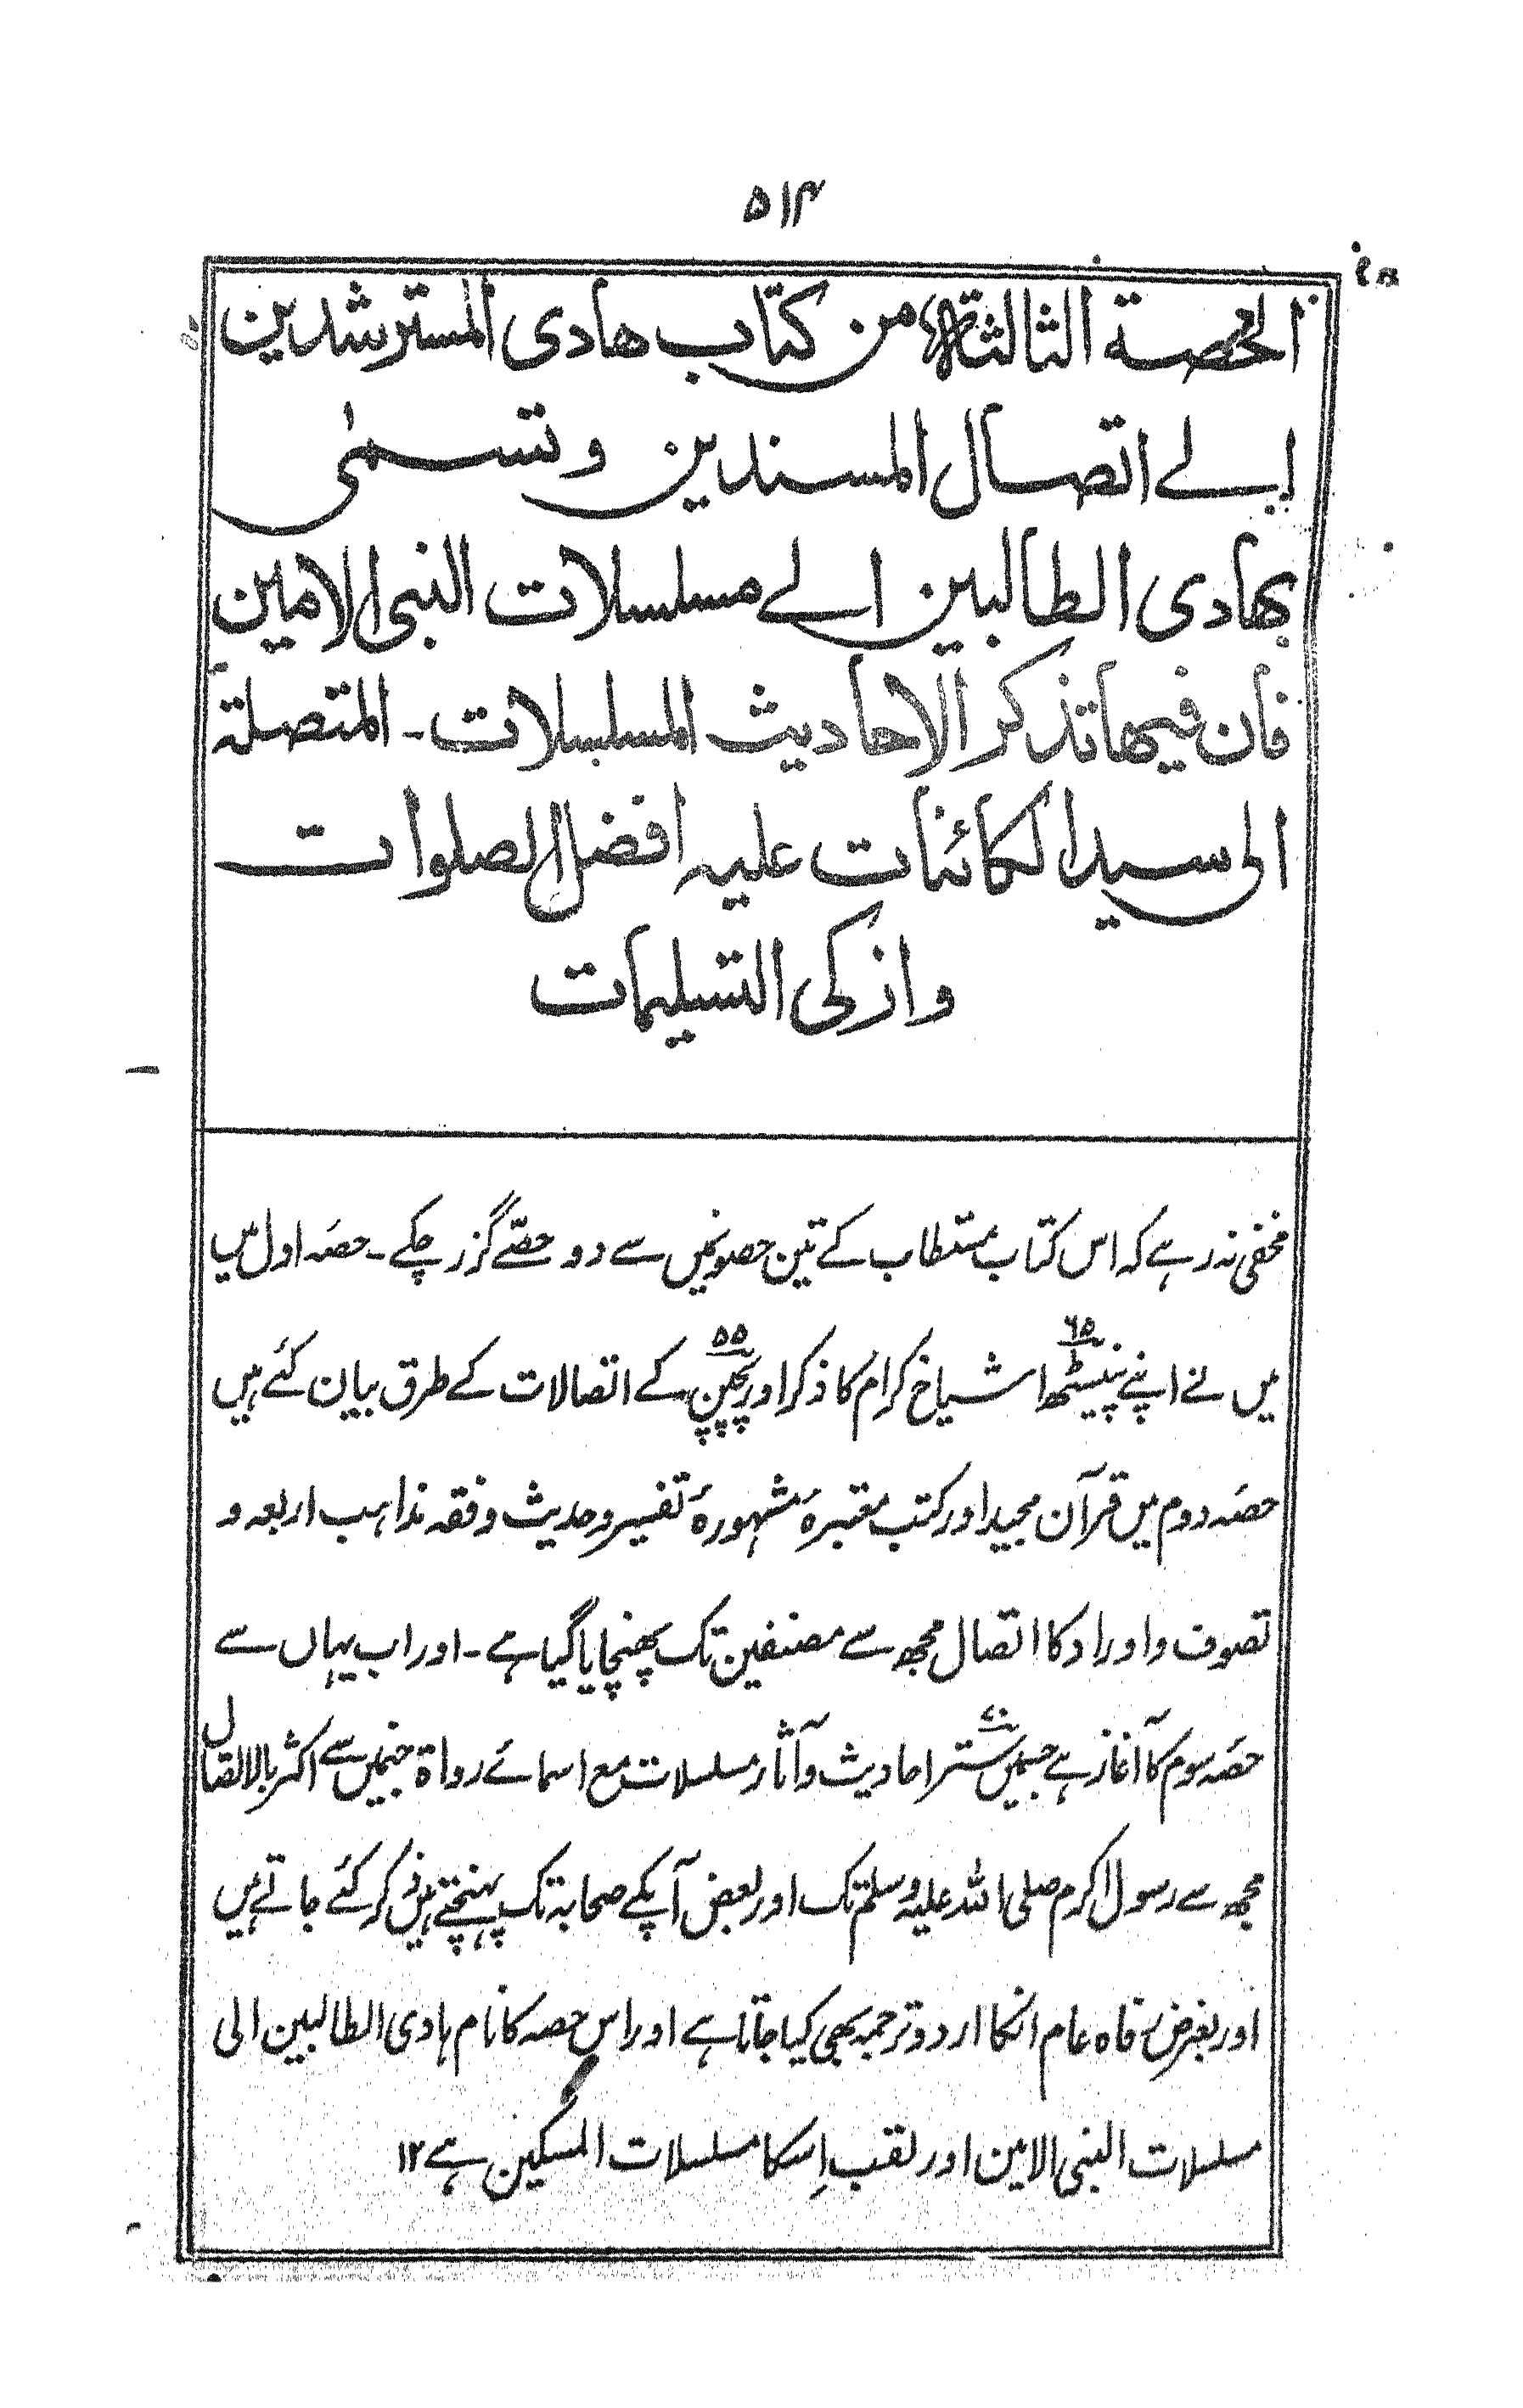 ۵۱۴
الحصة الثالثة من كتاب هادی المسترشدین
الے اتصال المسندین وتسمیٰ
بهادی الطالبین الے مسلسلات النبی الامین
فان فیها تذکر الاحادیث المسلسلات۔ المتصلة
الی سید الکائنات علیه افضل الصلوات
وازکی التسلیمات
مخفی نہ رہے کہ اس کتاب مستطاب کے تین حصونمیں سے دو حصّے گزر چکے۔ حصہ اول میں
میں نے اپنے پینسٹھ ۶۵ اشیاخ کرام کا ذکر اور پچپن ۵۵ کے اتصالات کے طرق بیان کئے ہیں
حصہ دوم میں قرآن مجید اور کتب معتبرۂ مشہورۂ تفسیر و حدیث و فقہ مذاہب اربعہ و
تصوف و اوراد کا اتصال مجھ سے مصنفین تک پھنچایا گیا ہے۔ اور اب یہاں سے
حصہ سوم کا آغاز ہے جسمیں ستر ۷۰ احادیث و آثار مسلسلات مع اسمائے رواۃ جنمیں سے اکثر بالاتصال
مجھ سے رسول اکرم صلی اللہ علیہ وسلم تک اور بعض آپکے صحابہ تک پہنچتے ہیں ذکر کئے جاتے ہیں
اور بغرض رفاہ عام انکا اردو ترجمہ بھی کیا جاتا ہے اور اس حصہ کا نام ہادی الطالبین الی
مسلسلات النبی الامین اور لقب اِسکا مسلسلات المسکین ہے ۱۲